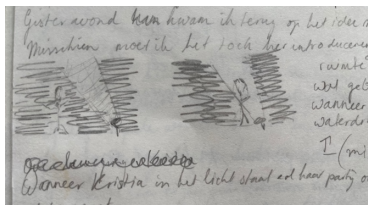 Gisteravond kwam ik terug op het idee
Misschien moet ik het toch her introduceren
ruimte
wat geb
wanneer
waterdr
I (mi
Wanneer Kristia in het licht staat en haar party